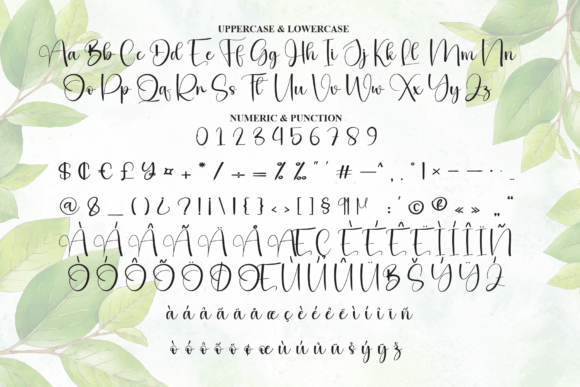 UPPERCASE & LOWERCASE
Aa Bb Cc Dd Ee Ff Gg Hh Ii Jj Kk Ll Mm Nn
Oo Pp Qq Rr Ss Tt Uu Vv Ww Xx Yy Zz
NUMERIC & PUNCTION
0 1 2 3 4 5 6 7 8 9
$ ₵ € £ ¥ ¤ + * / ÷ = % ‰ " ' # — ^ , . ° | × – — - .
@ & _ ( ) ¿ ? ! ¡ \ | { } < > [ ] § ¶ µ : ' © ® « » „ ¨
À Á Â Ã Ä Å Æ Ç È É Ê Ë Ì Í Î Ï Ñ
Ò Ó Ô Õ Ö Ø Œ Ù Ú Û Ü ß Š Ý Ÿ Ž
à á â ã ä å æ ç è é ê ë ì í î ï ñ
ò ó ô õ ö ø œ ù ú û ü š ý ÿ ž